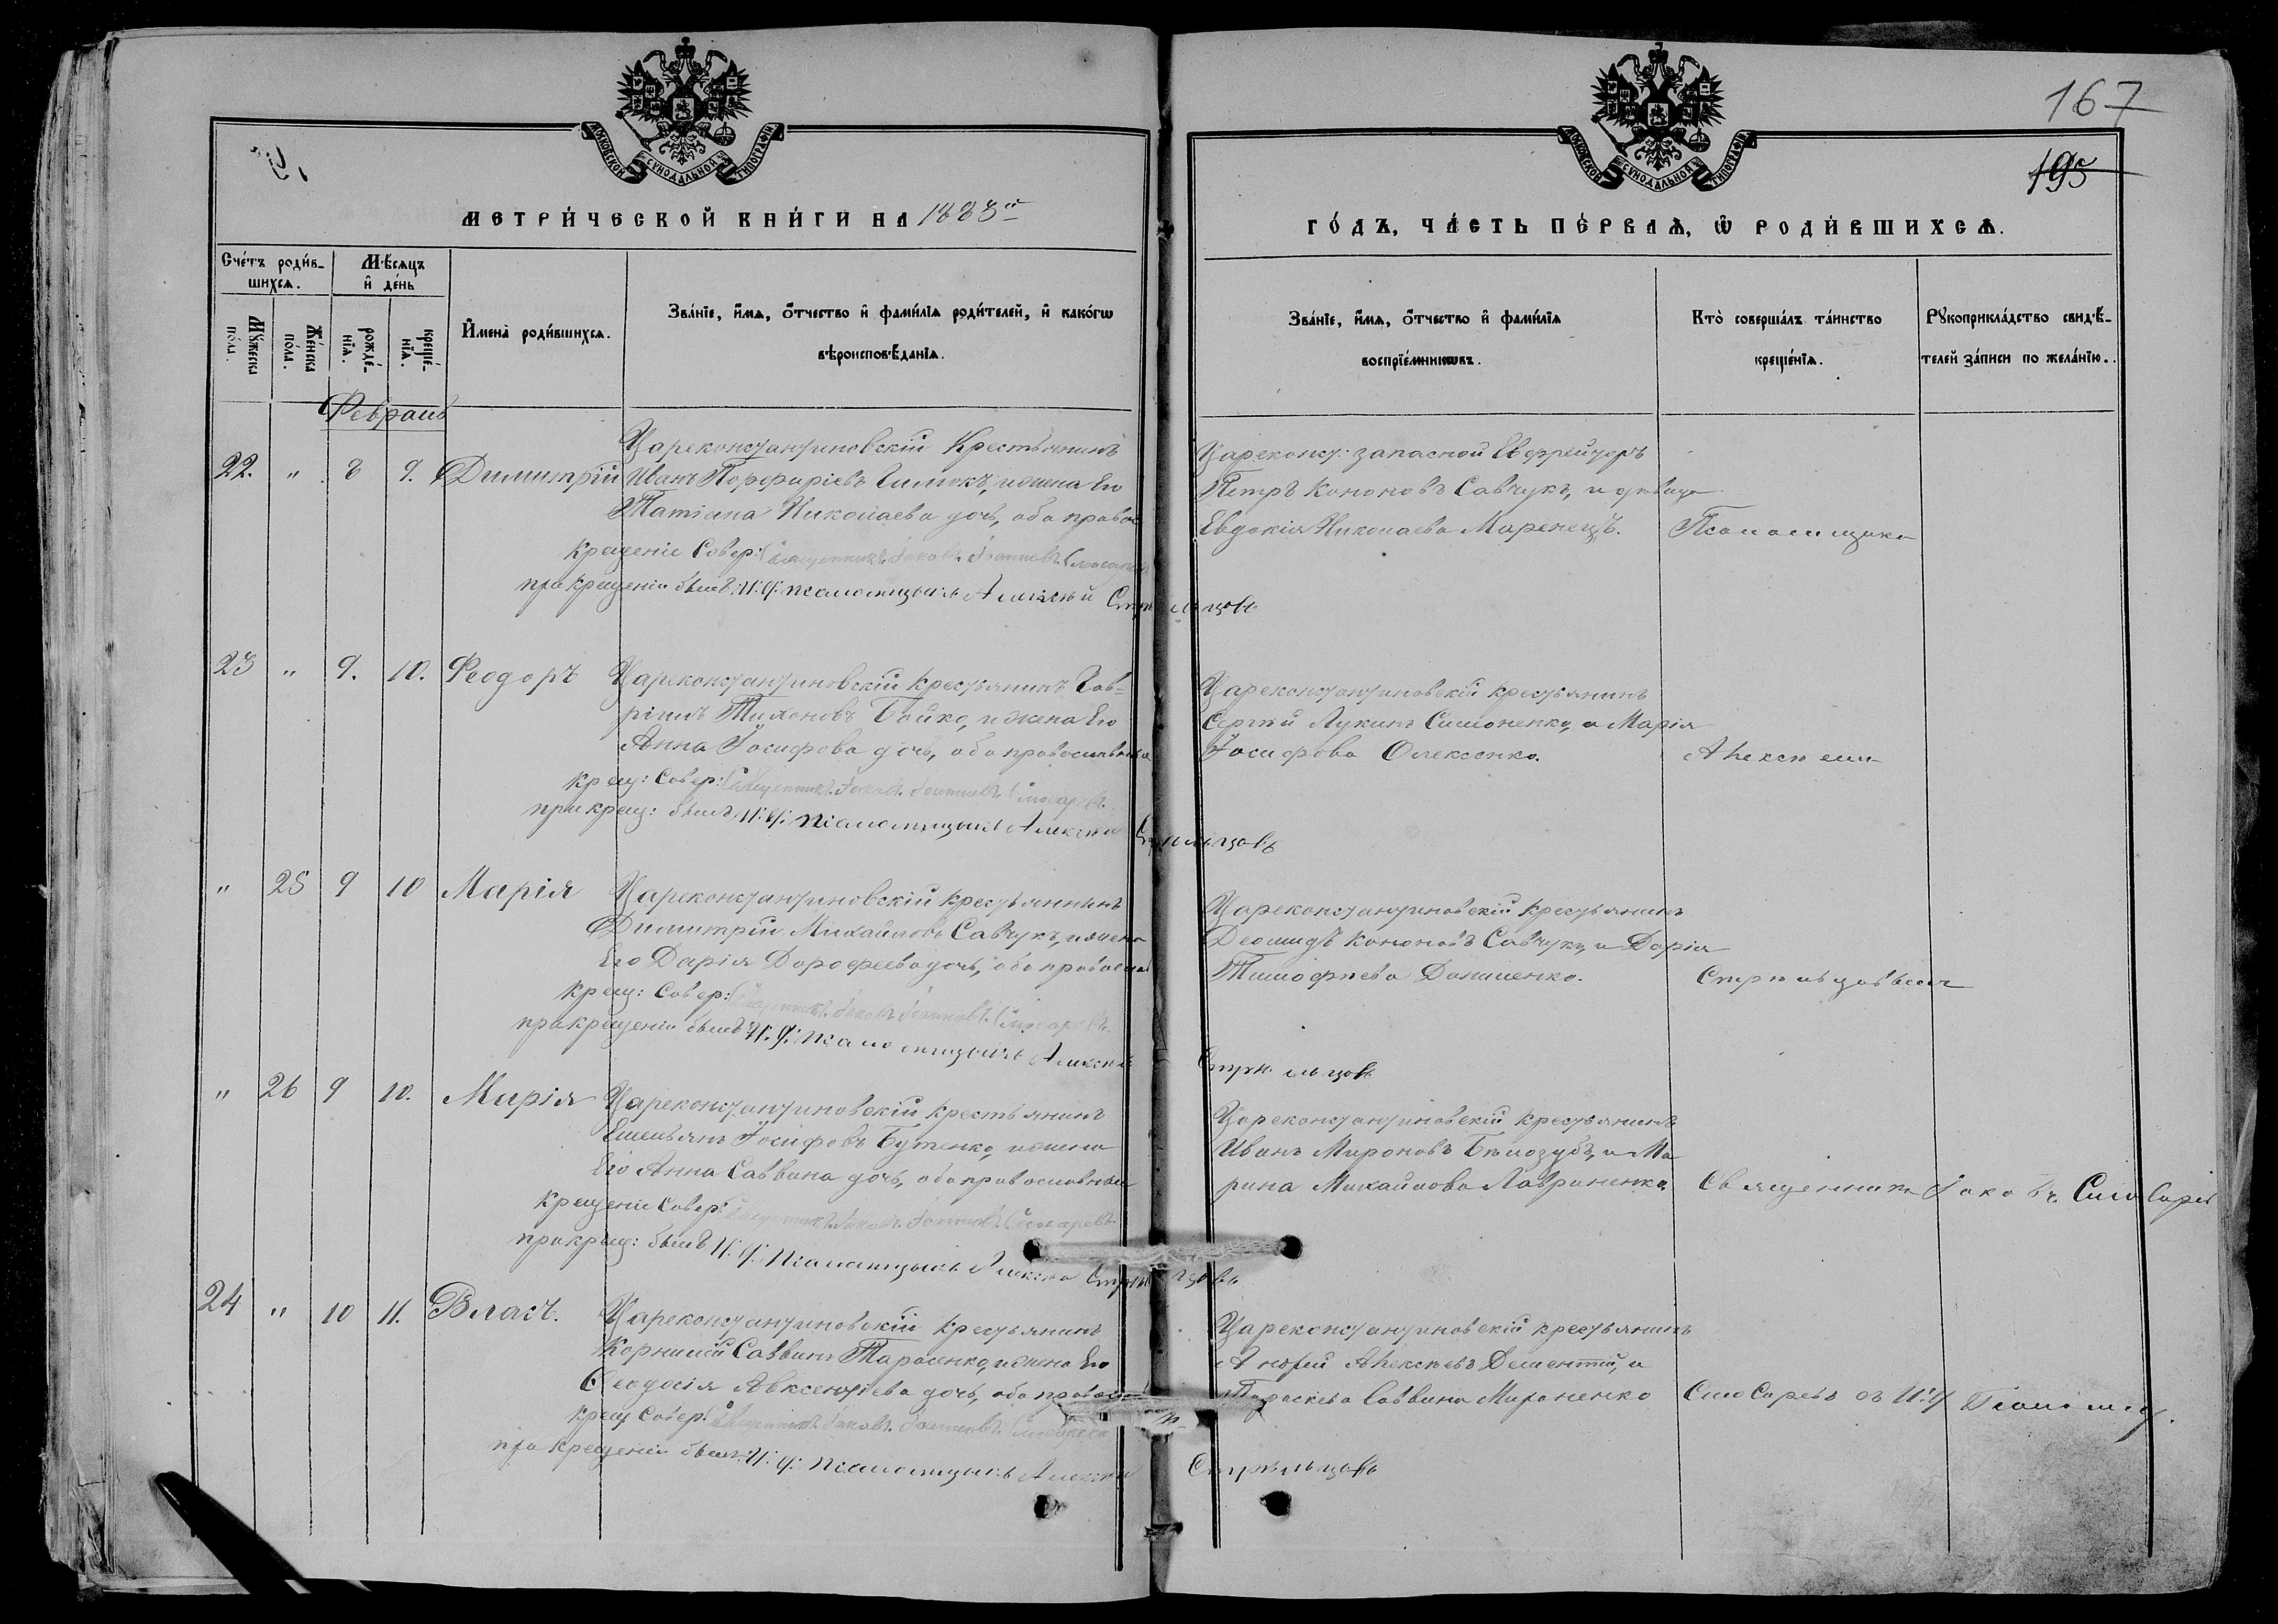 167
195
МОСКОВСКОЙ СУНОДАЛЬНОЙ ТИПОГРАФІИ
МОСКОВСКОЙ СУНОДАЛЬНОЙ ТИПОГРАФІИ
МЕТРИ́ЧЕСКОЙ КНИ́ГИ НА 1883й
ГО́ДЪ, ЧА́СТЬ ПЕ́РВАѦ, Ѡ РОДИ́ВШИХСѦ.
Сче́тъ роди́в-
шихсѧ.
Мꙋ́жеска
по́ла.
Же́нска
по́ла.
Мѣ́сѧцъ
и҆ де́нь
рожде́-
нїѧ.
креще́-
нїѧ.
И҆мена̀ роди́вшихсѧ.
Зва́нїе, и҆́мѧ, ѻ҆́тчество и҆ фами́лїѧ роди́телей, и҆ како́гѡ
вѣроисповѣ́данїѧ.
Зва́нїе, и҆́мѧ, ѻ҆́тчество и҆ фами́лїѧ
воспрїе́мникѡвъ.
Кто̀ соверша́лъ та́инство
креще́нїѧ.
Рꙋкоприкла́дство свидѣ́-
телей за́писи по жела́нїю.
Февраль
22. " 8 9. Димитрій
Цареконстантиновскій Крестьянинъ
Иванъ Порфиріевъ, и жена Его
Татіана Николаева дочь, оба правос
Крещеніе Совер: Священникъ Іаковъ Іоанновъ Слюсаревъ
при крещеніи былъ И: д: псаломщика Алексѣй Стрѣльцовъ
Цареконст: запасной Ефрейторъ
Петръ Кононовъ Савчукъ, и дѣвица
Евдокія Николаева Маренецъ.
Псаломщика
23 " 9. 10. Феодоръ
Цареконстантиновскій крестьянинъ Гав-
ріилъ Тихоновъ Бойко, и жена Его
Анна Іосифова дочь, оба православные
Крещ: Совер: Священникъ Іаковъ Іоанновъ Слюсаревъ.
при крещ: былъ И: д: псаломщика Алексѣй Стрѣльцовъ
Цареконстантиновскій крестьянинъ
Сергѣй Лукинъ Симоненко, и Марія
Іосифова Олексенко.
Алексѣемъ
" 25 9 10 Марія
Цареконстантиновскій крестьянинъ
Димитрій Михайловъ Савчукъ, и жена
Его Дарія Дорофеева дочь, оба правосла
Крещ: Совер: Священникъ Іаковъ Іоанновъ Слюсаревъ.
при крещеніи былъ И: д: псаломщика Алексѣй Стрѣльцовъ
Цареконстантиновскій крестьянинъ
Деомидъ Кононовъ Савчукъ, и Дарія
Тимофѣева Даниленко.
Стрѣльцовымъ
" 26 9 10. Марія
Цареконстантиновскій крестьянинъ
Емельянъ Іосифовъ Бутенко, и жена
Его Анна Саввина дочь, оба православные
Крещеніе Совер: Священникъ Іаковъ Іоанновъ Слюсаревъ.
при крещ: былъ И: д: псаломщика Алексѣй Стрѣльцовъ
Цареконстантиновскій крестьянинъ
Иванъ Мироновъ Бѣлозубъ, и Ма
рина Михайлова Лавриненко.
Священникъ Іаковъ Слюсаревъ
24 " 10 11. Власъ.
Цареконстантиновскій крестьянинъ
Корнилій Саввинъ Тарасенко, и жена Его
Феодосія Авксентіева дочь, оба правосл
Крещ Совер: Священникъ Іаковъ Іоанновъ Слюсаревъ
при крещеніи былъ: И: д: псаломщика Алексѣй Стрѣльцовъ
Цареконстантиновскій крестьянинъ
Андрей Алексѣевъ Дементій, и
Параскева Саввина Мироненко
Слюсаревъ съ И: д Псаломщ.